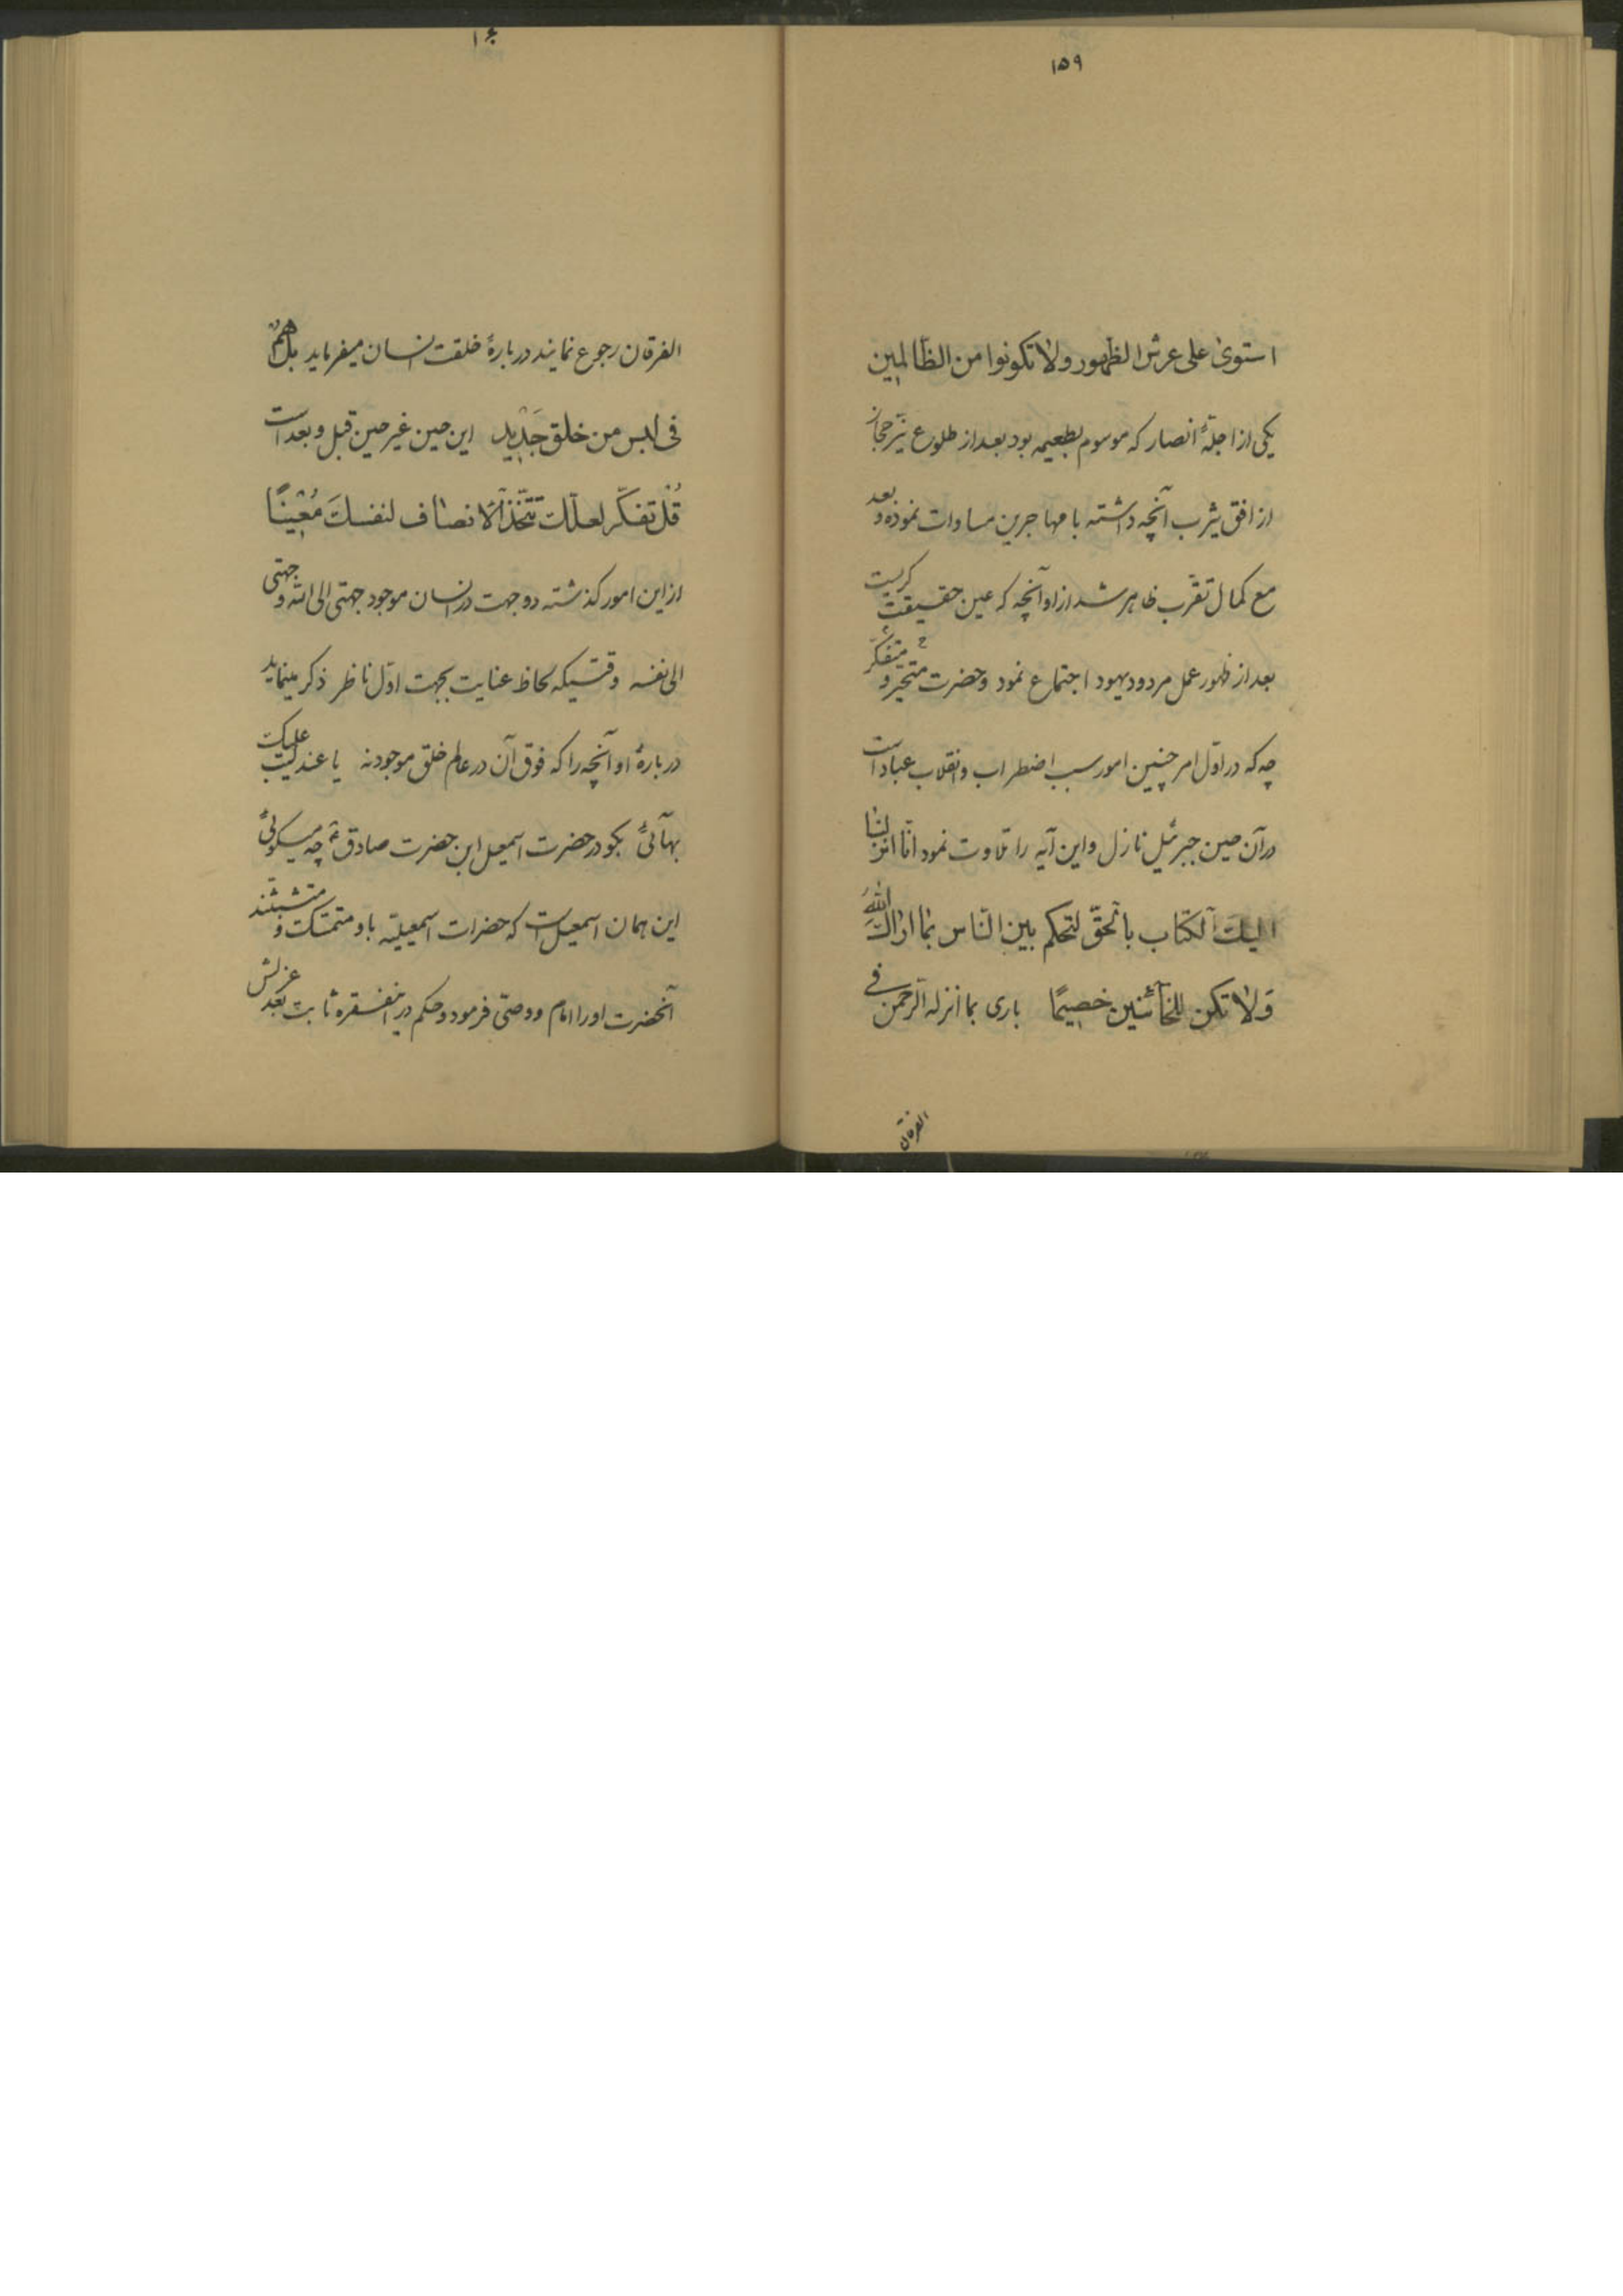 ۱۵۹
استوی علی عرش الظهور ولا تکونوا من الظالمین
یکی از اجلّهٔ انصار که موسوم بطعیمه بود بعد از طلوع نیّر حجاز
از افق یثرب آنچه داشته با مهاجرین مساوات نموده و بعد
مع کمال تقرّب ظاهر شد از او آنچه که عین حقیقت گریست
بعد از ظهور عمل مردود یهود اجتماع نمود و حضرت متحیّر و متفکّر
چه که در اوّل امر چنین امور سبب اضطراب و انقلاب عباد است
در آن حین جبرئیل نازل و این آیه را تلاوت نمود انّا انزلنا
الیک الکتاب بالحقّ لتحکم بین النّاس بما اراک اللّه
وَلا تکن للخآئنین خصیمًا باری بما انزله الرّحمن فی
الفرقان
۱۶۰
الفرقان رجوع نمایند دربارهٔ خلقت انسان میفرماید بل هم
فی لبس من خلق جَدْید این حین غیر حین قبل و بعد است
قُلْ تفکّر لعلّک تتّخذ الانصاف لنفسکَ مُعْینًا
از این امور کذشته دو جهت در انسان موجود جهتی الی اللّه و جهتی
الی نفسه وقتیکه لحاظ عنایت بجهت اوّل ناظر ذکر مینماید
دربارهٔ او آنچه را که فوق آن در عالم خلق موجود نه یا عندلیب علیک
بهآئی بکو در حضرت اسمعیل ابن حضرت صادق ع چه میکوئی
این همان اسمعیل است که حضرات اسمعیلیّه باو متمسّکت و متشبّثند
آنحضرت او را امام و وصیّ فرمود و حکم در اینفقره ثابت بعد عزلش